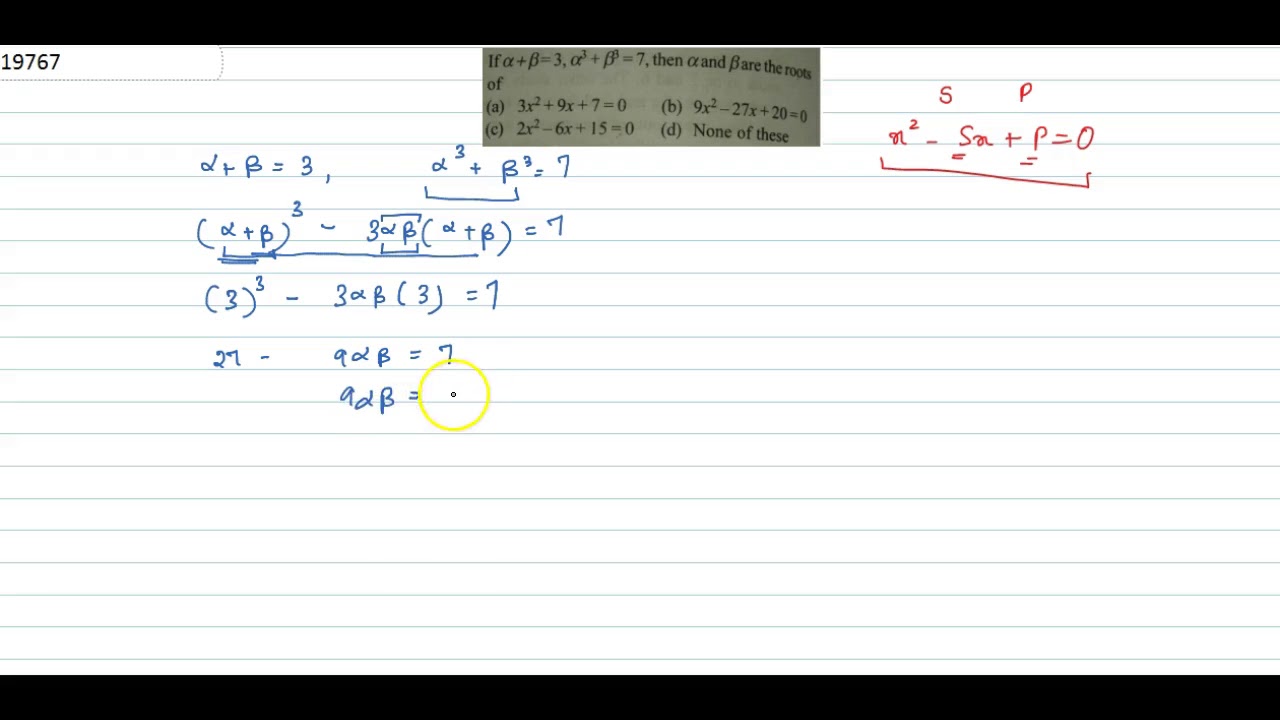 19767
If α+β=3, α³+β³=7, then α and β are the roots
of
(a) 3x²+9x+7=0 (b) 9x²−27x+20=0
(c) 2x²−6x+15=0 (d) None of these
S P
x² − Sx + P = 0
α + β = 3, α³ + β³ = 7
(α + β)³ − 3αβ(α + β) = 7
(3)³ − 3αβ(3) = 7
27 − 9αβ = 7
9αβ =